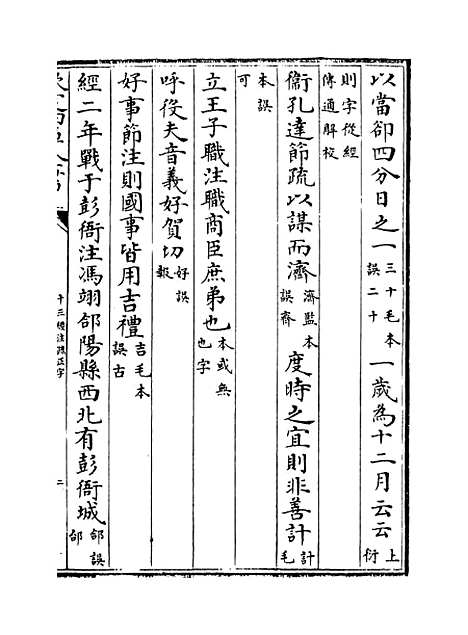 以當卻四分日之一三十毛本誤二十一歲為十二月云云上衍
則字從經傳通解校
衞孔達節疏以謀而濟濟監本誤齊度時之宜則非善計計毛
本誤可
立王子職注職商臣庶弟也本或無也字
呼役夫音義好賀切好誤報
好事節注則國事皆用吉禮吉毛本誤古
經二年戰于彭衙注馮翊郃陽縣西北有彭衙城郃誤郤
十三經注疏正字
二